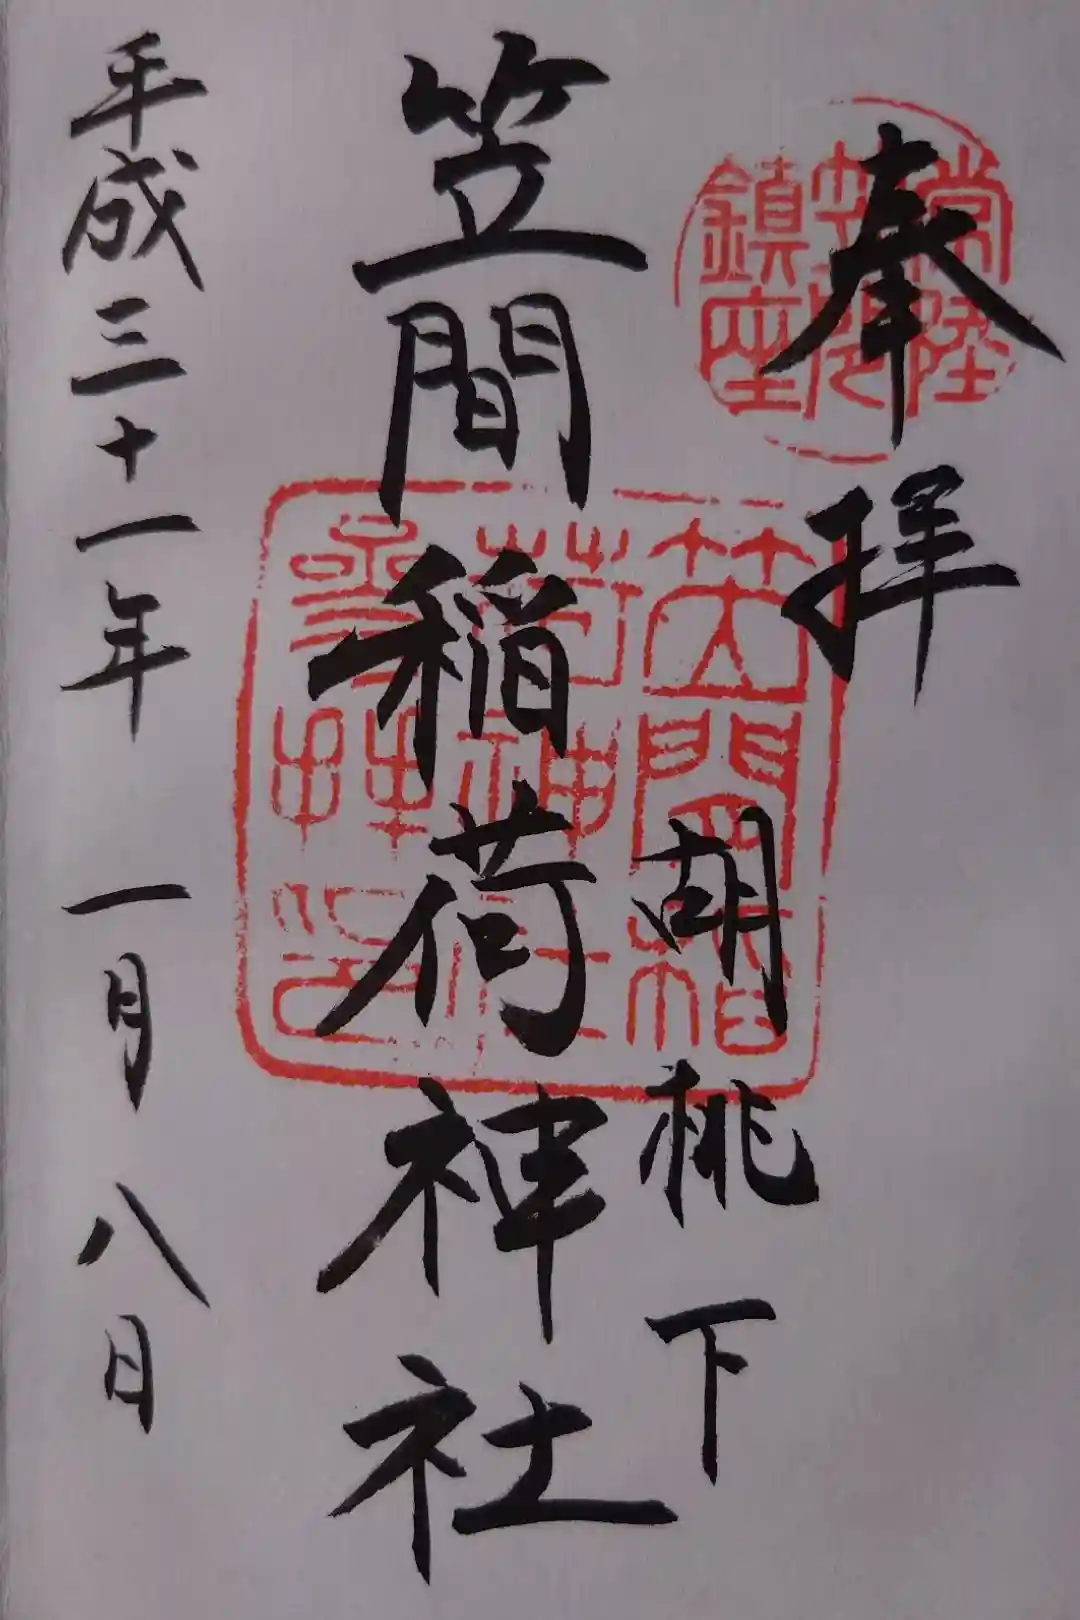 奉拝
常陸
笠間
鎮座
胡桃下
笠間稲荷神社
笠間稲
荷神社
参拝之
平成三十一年 一月八日